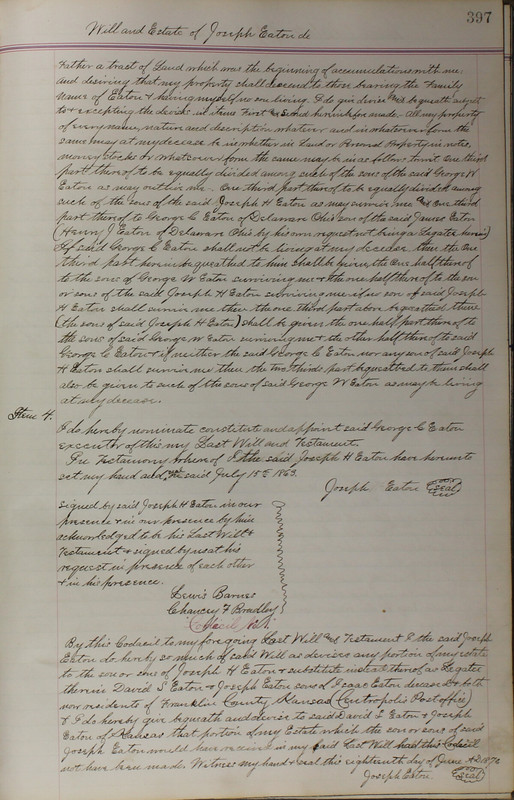 397
Will and Estate of Joseph Eaton de
Father a tract of Land which was the beginning of accumulations with me
and desiring that my property shall descend to those bearing the Family
Name of Eaton & having myself no son living. I do give devise and bequeath subject
to & excepting the devises in Items First & Second herein before made. All my property
of every name, nature and description whatever and in whatsoever form the
same may at my decease be in whether in Land or Personal Property in notes,
money stocks or whatsoever form the same may be in as follows to wit One third
part thereof to be equally divided among such of the sons of the said George W
Eaton as may outlive me. One third part thereof to be equally divided among
such of the sons of the said Joseph H Eaton as may survive me and One third
part thereof to George C Eaton of Delaware Ohio son of the said James Eaton
(Henry J Eaton of Delaware Ohio by his own request not being a Legatee herein)
If said George C Eaton shall not be living at my decease then the One
third part herein bequeathed to him shall be given the One half thereof
to the sons of George W Eaton surviving me & the one half thereof to the son
or sons of the said Joseph H Eaton surviving me if no son of said Joseph
H Eaton shall survive me then the one third part above bequeathed them
(the sons of said Joseph H Eaton) shall be given the one half part thereof to
the sons of said George W Eaton surviving me & the other half thereof to said
George C Eaton & if neither the said George C Eaton nor any son of said Joseph
H Eaton shall survive me then the two thirds part bequeathed to them shall
also be given to such of the sons of said George W Eaton as may be living
at my decease.
Item 4.
I do hereby nominate constitute and appoint said George C Eaton
executor of this my Last Will and Testament.
In Testamony whereof I the said Joseph H Eaton have hereunto
set my hand and seal said July 15th 1863.
Joseph Eaton (Seal)
Signed by said Joseph H Eaton in our
presence & in our presence by him
acknowledged to be his Last Will &
Testament & signed by us at his
request in presence of each other
& in his presence.
Lewis Barnes
Chancey F Bradley
By this Codacil to my foregoing Last Will and Testament I the said Joseph
Eaton do hereby so much of said Will as devises any portion of my estate
to the son or sons of Joseph H Eaton & substitute instead thereof as Legatee
therein David S Eaton & Joseph Eaton sons of Isaac Eaton deceased & both
now residents of Franklin County Kansas (Centropolis Post office)
& I do hereby give bequeath and devise to said David S Eaton & Joseph
Eaton of Kansas that portion of my Estate which the son or sons of said
Joseph Eaton would have received in my said Last Will had this Codacil
not have been made. Witness my hand & seal this eighteenth day of June AD 1870
Joseph Eaton (Seal)